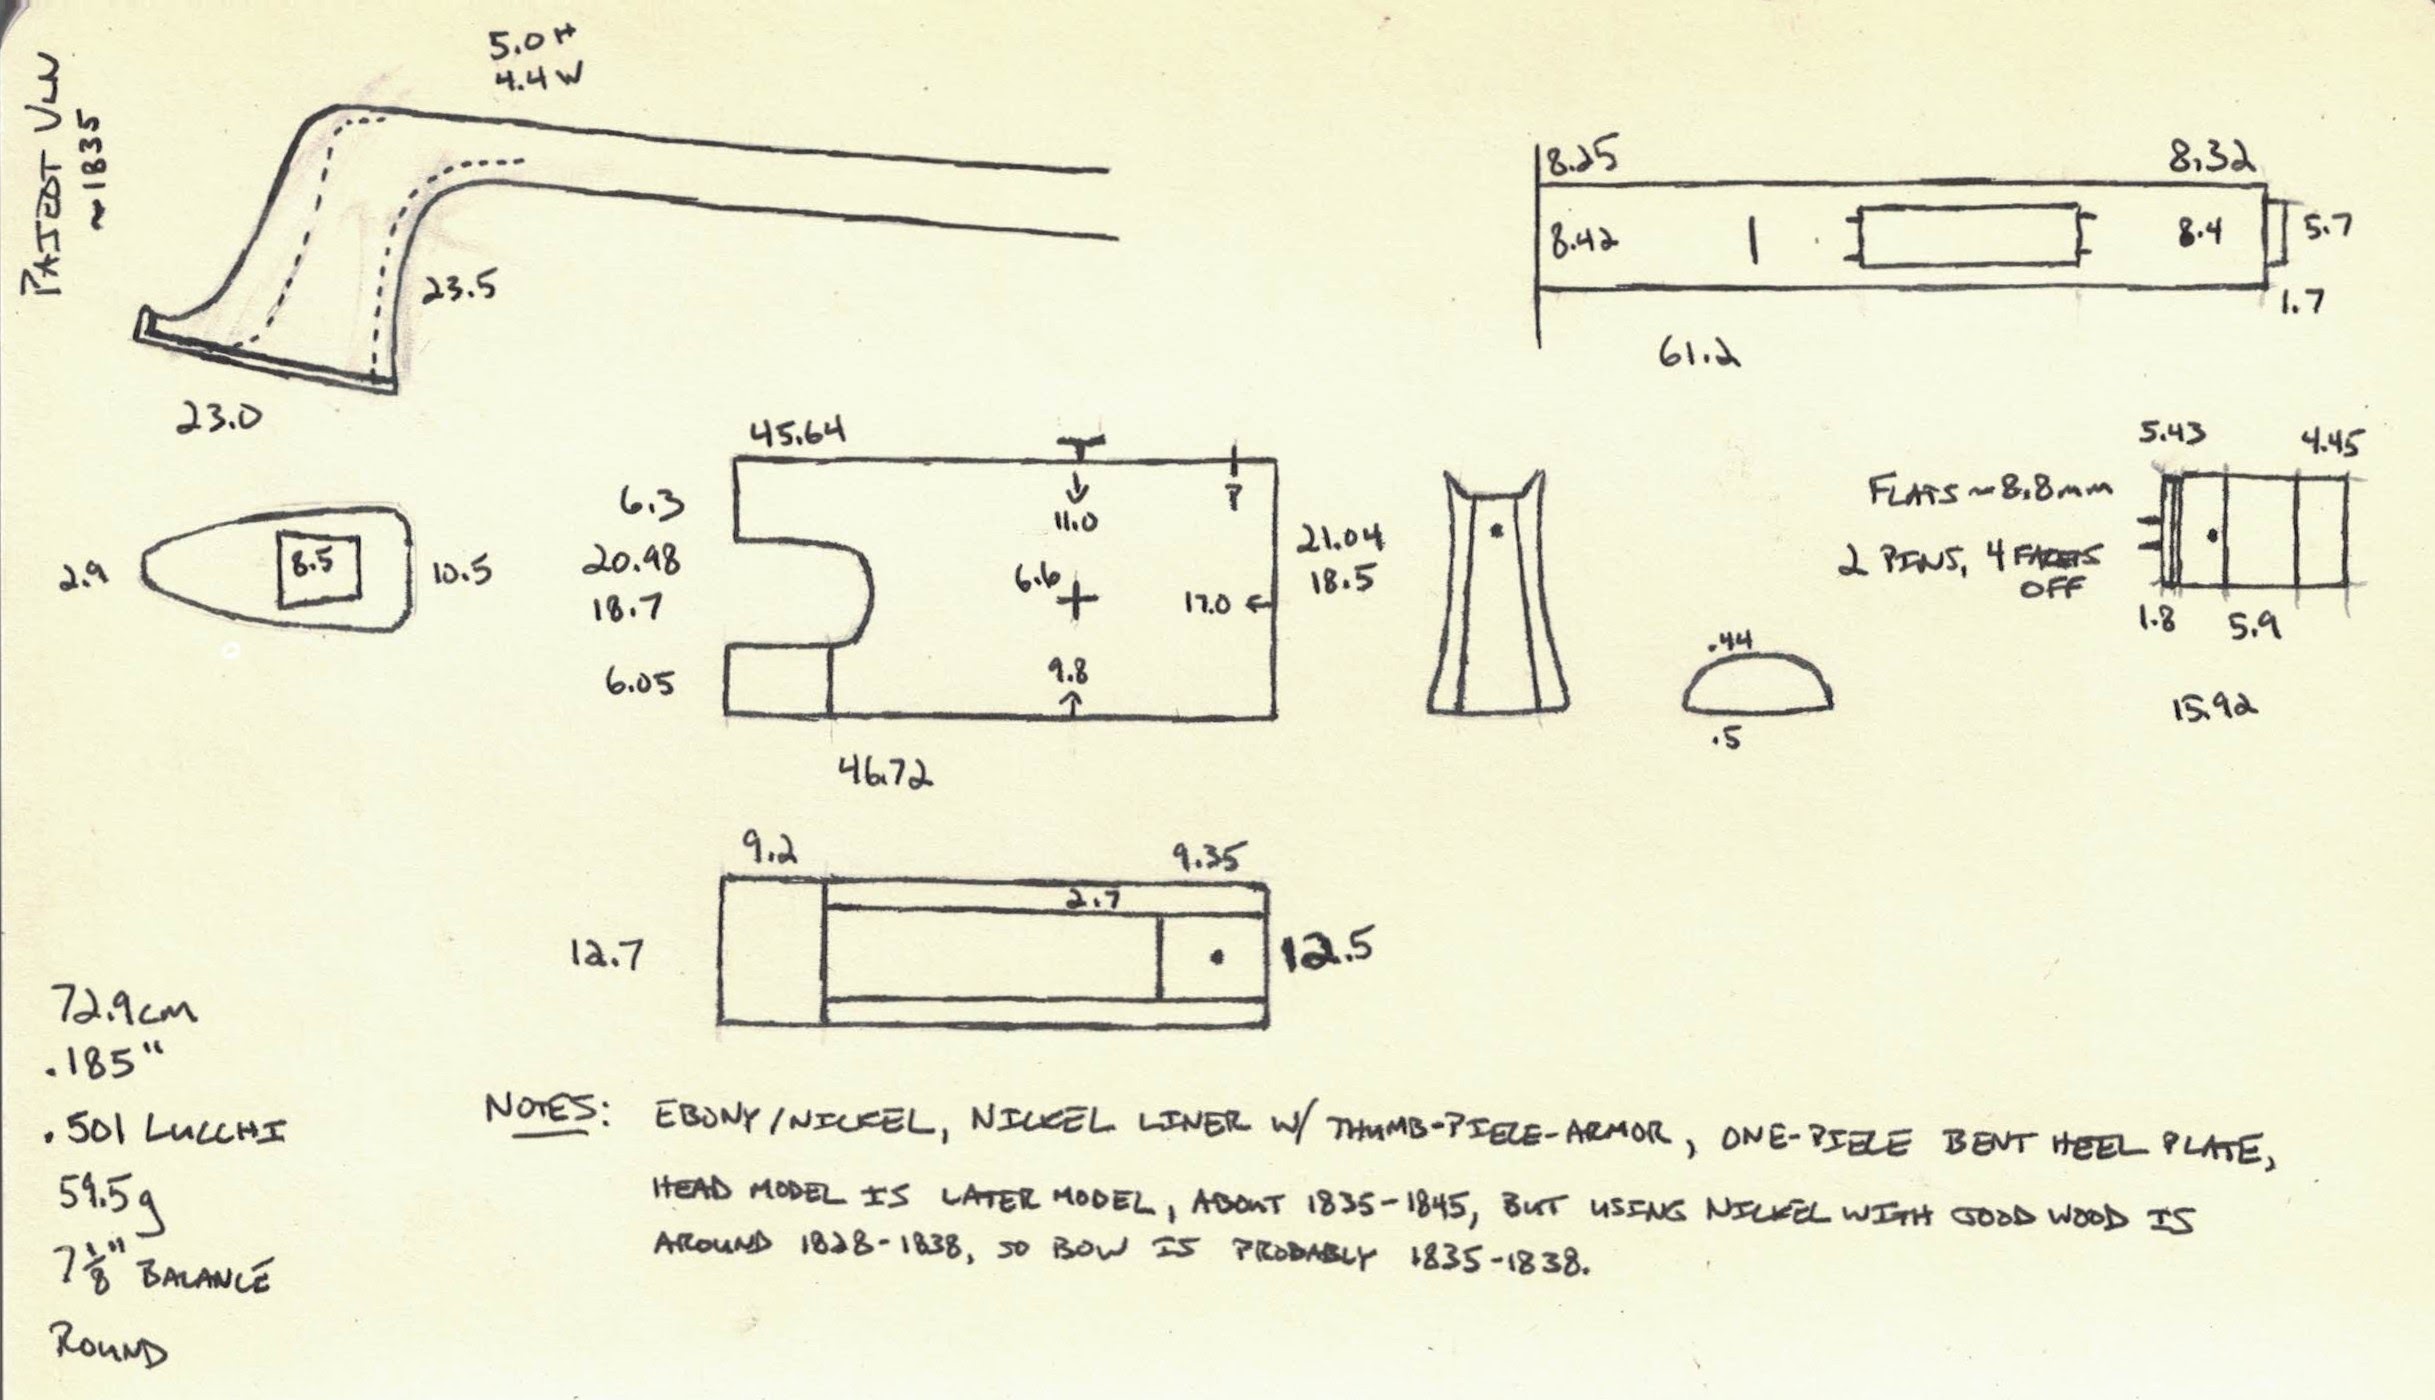 PAJEOT VLN
~1835
5.0 H
4.4 W
23.5
23.0
8.25
8.32
8.42
8.4
5.7
1.7
61.2
2.9
8.5
10.5
45.64
6.3
20.98
18.7
6.05
11.0
7
6.6
17.0
9.8
21.04
18.5
46.72
.44
.5
5.43
4.45
FLATS ~8.8mm
2 PINS, 4 FACETS
OFF
1.8
5.9
15.92
9.2
9.35
2.7
12.7
12.5
72.9cm
.185"
.501 LUCCHI
59.5g
7 1/8" BALANCE
ROUND
NOTES: EBONY/NICKEL, NICKEL LINER W/ THUMB-PIECE-ARMOR, ONE-PIECE BENT HEEL PLATE,
HEAD MODEL IS LATER MODEL, ABOUT 1835-1845, BUT USING NICKEL WITH GOOD WOOD IS
AROUND 1828-1838, SO BOW IS PROBABLY 1835-1838.